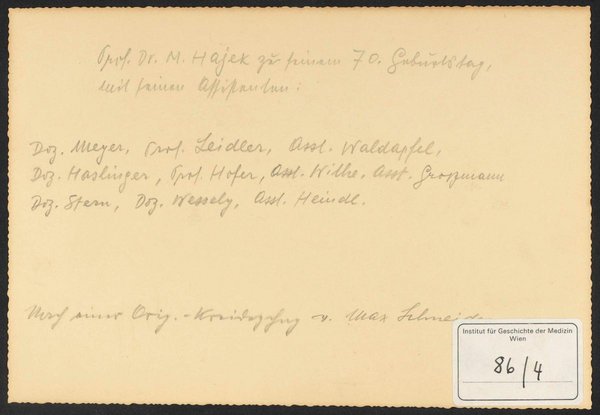 Prof. Dr. M. Hajek zu seinem 70. Geburtstag,
mit seinen Assistenten:
Doz. Meyer, Prof. Leidler, Asst. Waldapfel,
Doz. Haslinger, Prof. Hofer, Asst. Withe, Asst. Großmann
Doz. Stern, Doz. Wessely, Asst. Heindl.
Nach einer Orig.-Kreidezchng v. Max
Institut für Geschichte der Medizin
Wien
86/4